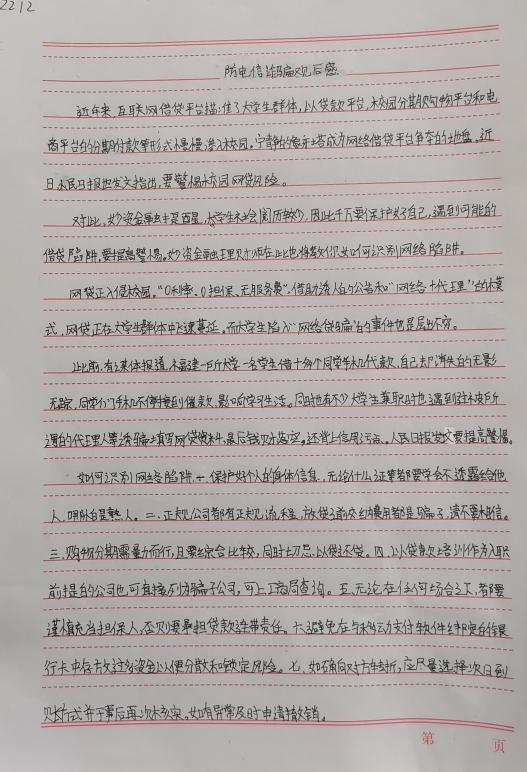 2212
防电信诈骗观后感
近年来，互联网借贷平台瞄准了大学生群体，以贷款平台，校园分期购物平台和电
商平台的分期付款等形式慢慢渗入校园。宁静的象牙塔成为网络借贷平台争夺的地盘。近
日人民日报也发文指出，要警惕校园网贷风险。
对此，妙资金融主莫西星，大学生社会阅历较少，因此千万要保护好自己，遇到可能的
借贷陷阱，要提高警惕。妙资金融理财师在此也将教你如何识别网络陷阱。
网贷正入侵校园。“0利率、0担保、无服务费”，借助诱人的公告和“网络+代理”的模
式，网贷正在大学生群体中飞速蔓延。而大学生陷入“网络贷骗”的事件也是层出不穷。
此前，有媒体报道，福建一所大学一名学生借十多个同学手机代款，自己却消失的无影
无踪，同学们手机不停接到催款，影响学习生活。同时也有不少大学生兼职时也遇到驻校所
谓的代理人等诱骗填写网贷资料，最后钱财落空，还背上信用污点。人民日报发文要提高警惕。
如何识别网络陷阱，一、保护好个人的身体信息，无论什么证笔都要学会不透露给他
人，哪怕是熟人。二、正规公司都有正规流程，放贷之前交纳费用都是骗子，请不要相信。
三、购物分期需量力而行，且要综合比较，同时切忌以贷还贷。四、以贷款上培训作为入职
前提的公司也可直接列为骗子公司，可上工商局查询。五、无论在任何场合之下，都要
谨慎充当担保人，否则要承担贷款连带责任。六、避免在与移动支付软件绑定的银
行卡中存放过多资金以便分散和锁定风险。七、如确向对方转帐，应尽量选择次日到
账方式并于事后再次核实。如有异常及时申请撤销。
第 页